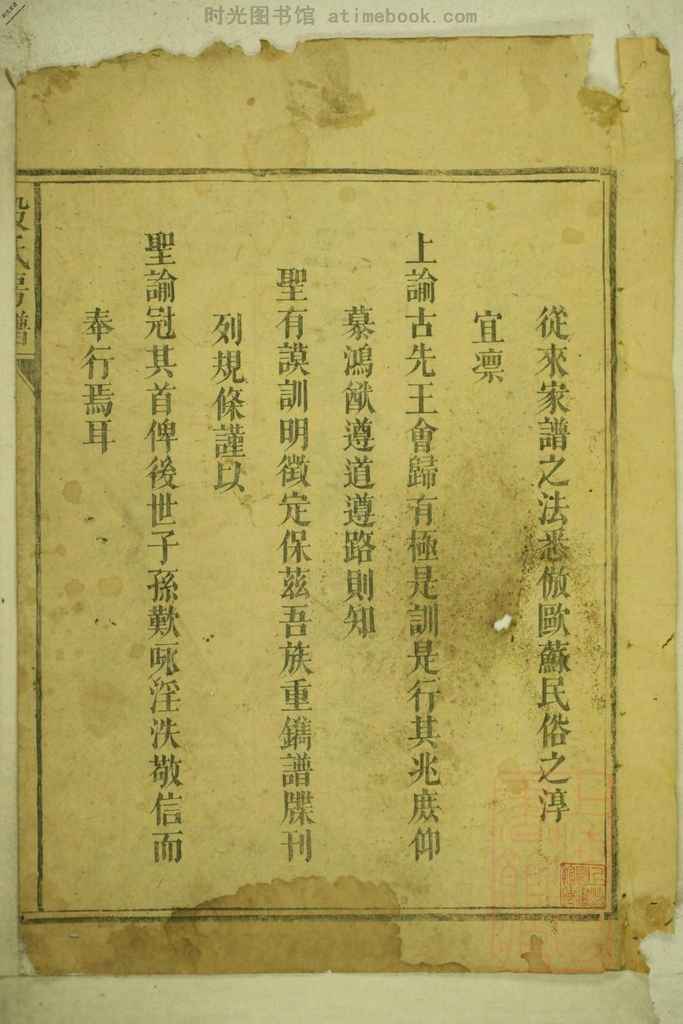 时光图书馆 atimebook.com
從來家譜之法悉倣歐蘇民俗之淳
宜凛
上諭古先王會歸有極是訓是行其兆庶仰
慕鴻猷遵道遵路則知
聖有謨訓明徵定保茲吾族重鐫譜牒刊
列規條謹以
聖諭冠其首俾後世子孫歎咏淫泆敬信而
奉行焉耳
氏房譜